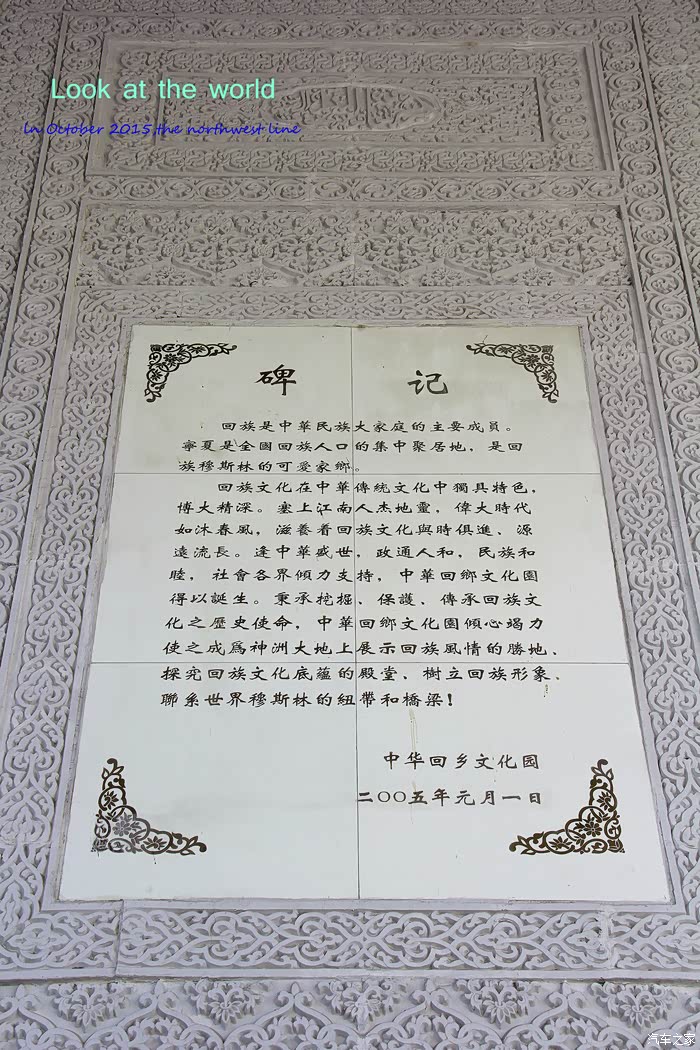 Look at the world
In October 2015 the northwest line
碑记
回族是中華民族大家庭的主要成員。
寧夏是全國回族人口的集中聚居地，是回
族穆斯林的可愛家鄉。
回族文化在中華傳統文化中獨具特色，
博大精深。塞上江南人杰地靈，偉大時代
如沐春風，滋養着回族文化與時俱進、源
遠流長。逢中華盛世，政通人和，民族和
睦，社會各界傾力支持，中華回鄉文化園
得以誕生。秉承挖掘、保護、傳承回族文
化之歷史使命，中華回鄉文化園傾心竭力
使之成爲神洲大地上展示回族風情的勝地、
探究回族文化底蘊的殿堂、樹立回族形象、
聯系世界穆斯林的紐帶和橋梁！
中华回乡文化园
二〇〇五年元月一日
汽车之家